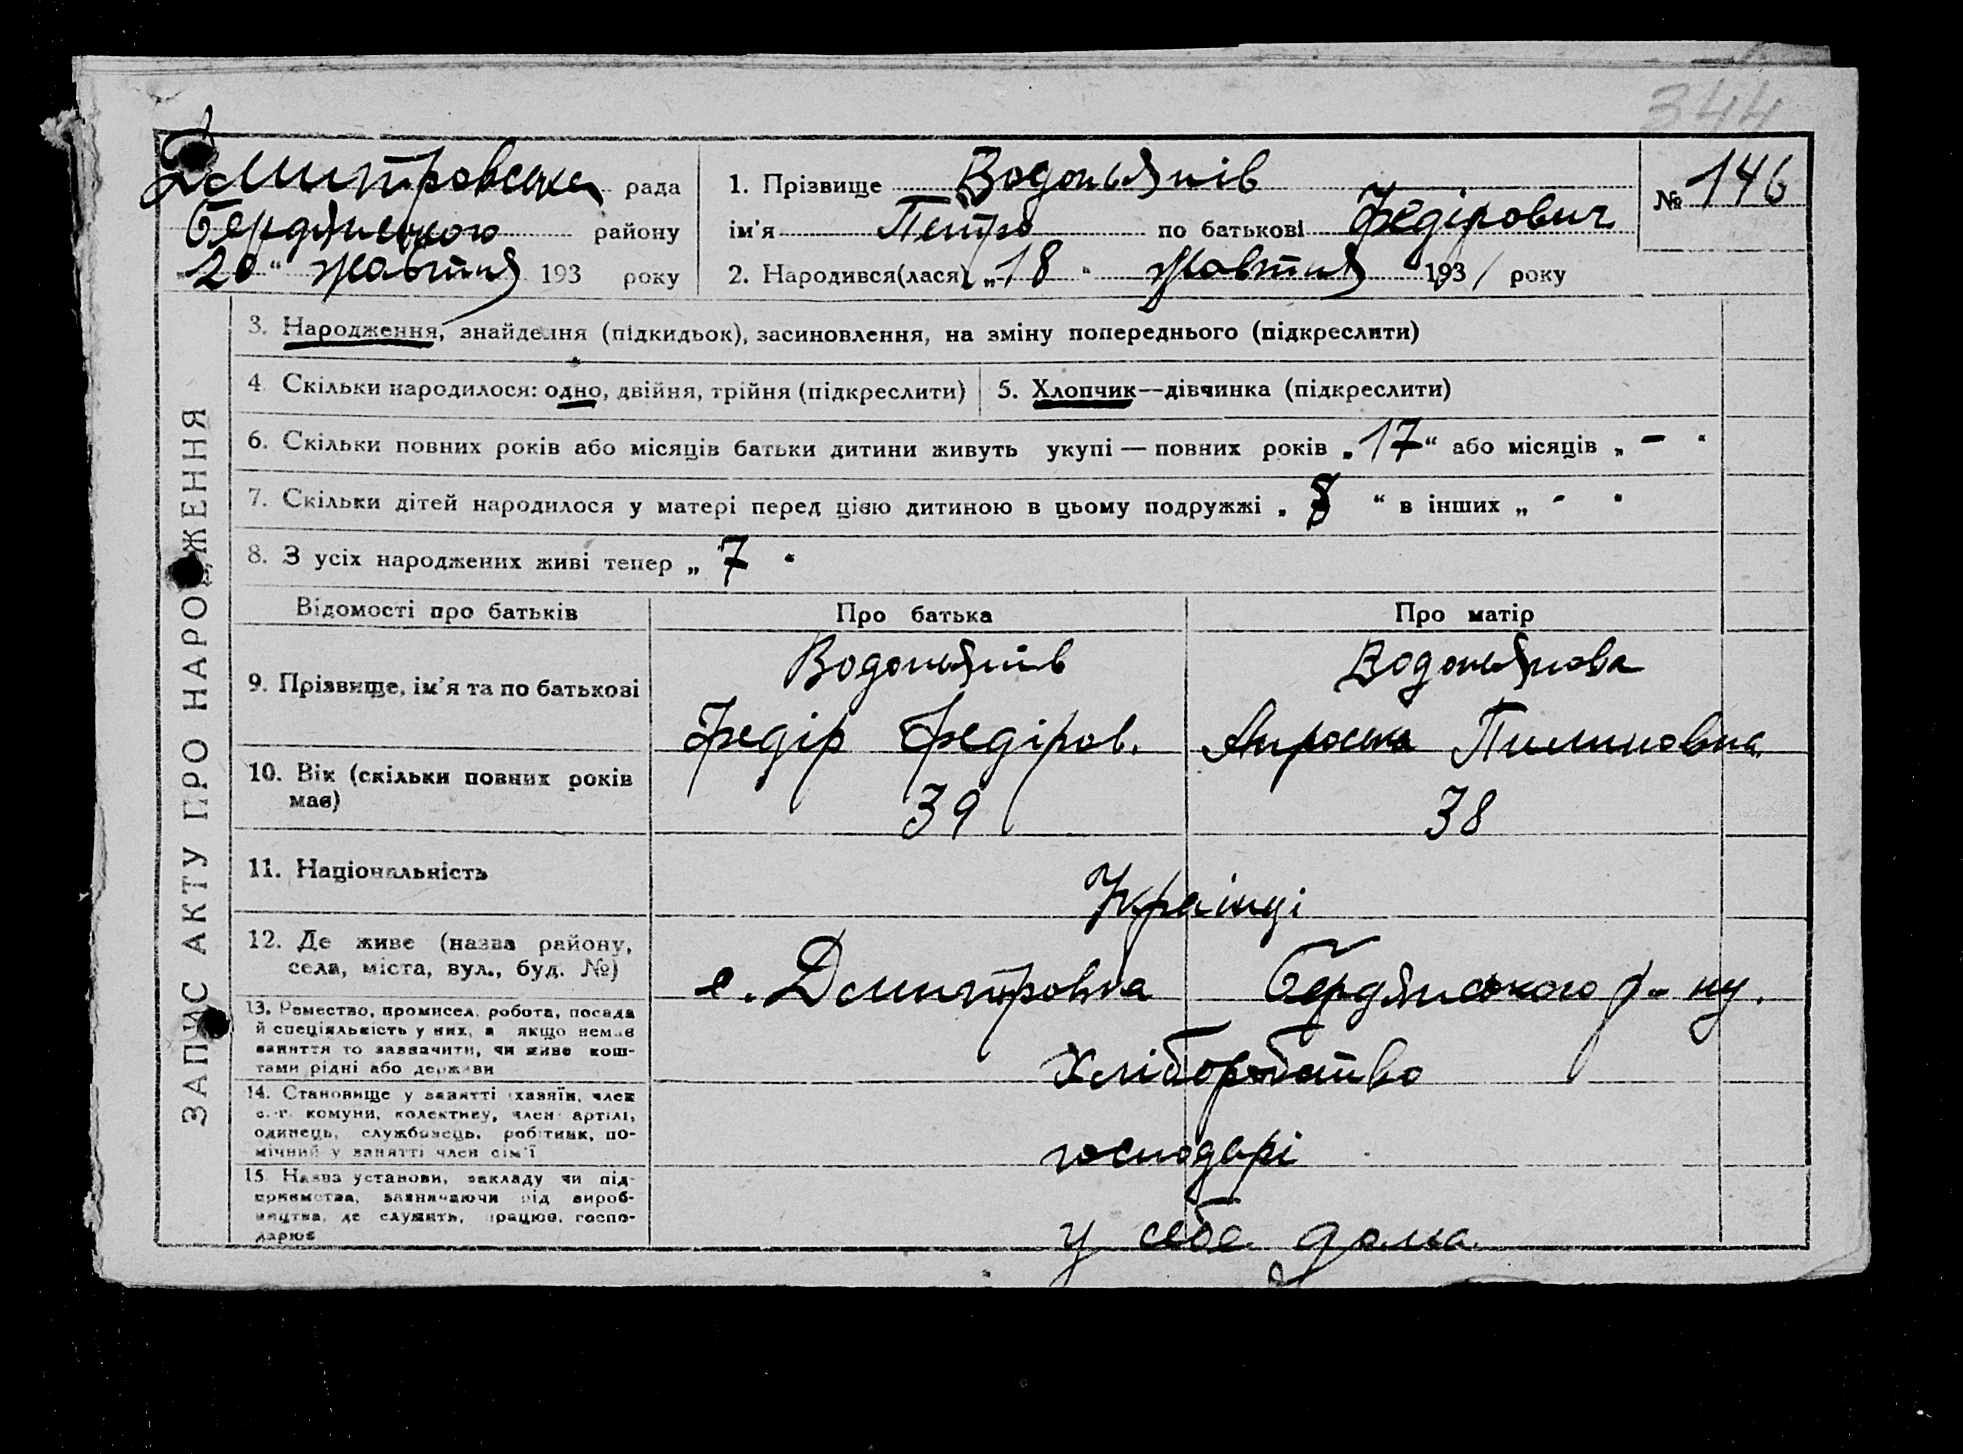 344
Дмитровська рада
Бердянського району
"20" жовтня 193 року
1. Прізвище Водоп'янів
ім'я Петро по батькові Федірович
№ 146
2. Народився(лася) „18" жовтня 1931 року
ЗАПИС АКТУ ПРО НАРОДЖЕННЯ
3. Народження, знайдення (підкидьок), засиновлення, на зміну попереднього (підкреслити)
4. Скільки народилося: одно, двійня, трійня (підкреслити)
5. Хлопчик—дівчинка (підкреслити)
6. Скільки повних років або місяців батьки дитини живуть укупі — повних років „17" або місяців „ - "
7. Скільки дітей народилося у матері перед цією дитиною в цьому подружжі „ 8 " в інших „ - "
8. З усіх народжених живі тепер „ 7 "
Відомості про батьків Про батька Про матір
9. Прізвище, ім'я та по батькові
Водоп'янів
Федір Федіров.
Водоп'янова
Пилиповна
10. Вік (скільки повних років має)
39
38
11. Національність
Українці
12. Де живе (назва району,
села, міста, вул., буд. №)
с. Дмитровка Бердянського р-ну.
13. Ремество, промисел, робота, посада
й спеціяльність у них, а якщо немає
заняття то зазначити, чи живе кош-
тами рідні або держави
Хліборобство
14. Становище у занятті (хазяїн, член
с.-г. комуни, колективу, член артілі,
одинець, службовець, робітник, по-
мічний у занятті член сім'ї
господарі
15. Назва установи, закладу чи під-
приємства, зазначаючи рід вироб-
ництва, де служить, працює, госпо-
дарює
у себе дома